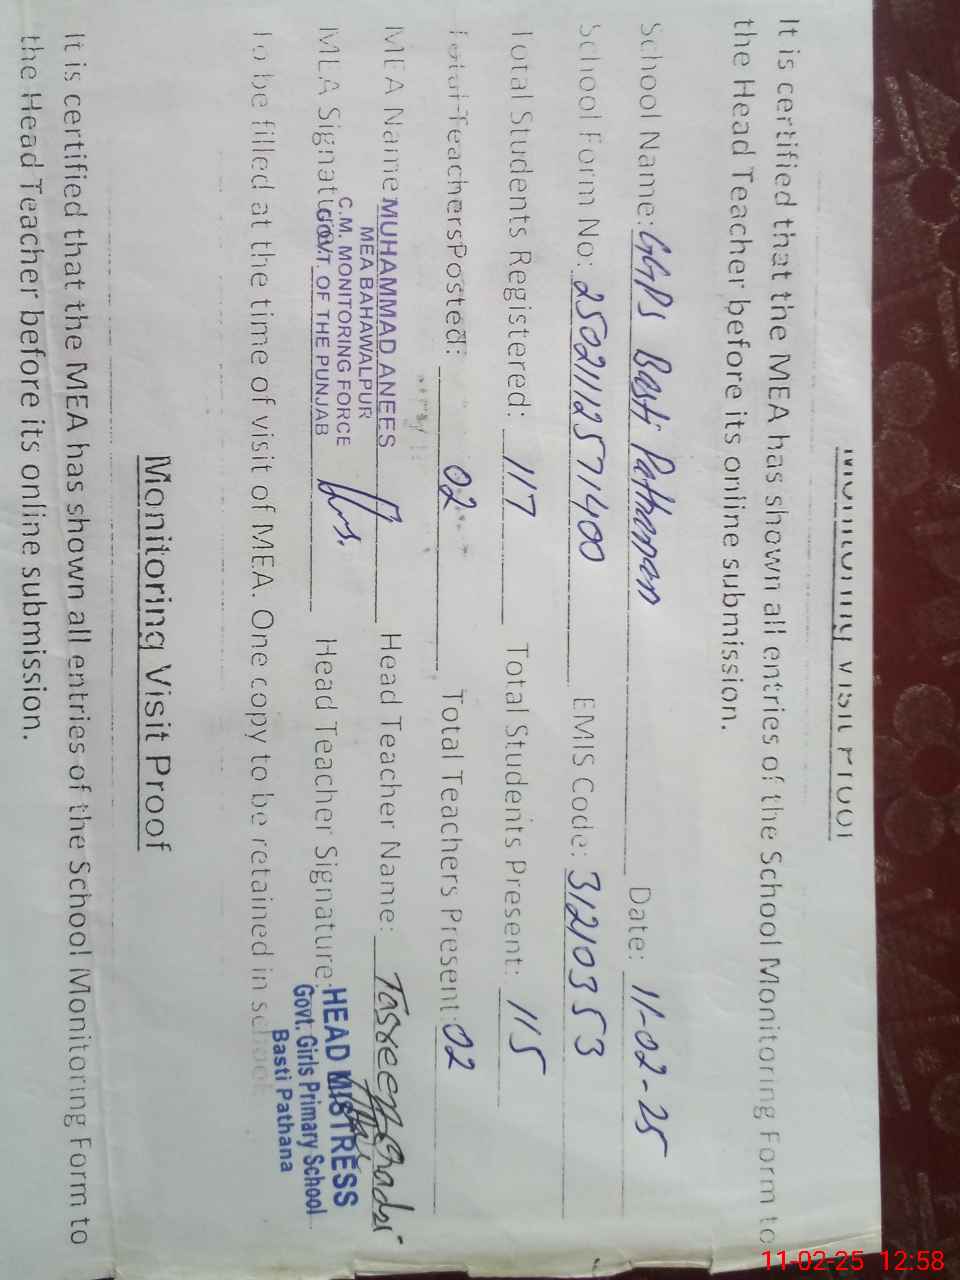 Monitoring Visit Proof
It is certified that the MEA has shown all entries of the School Monitoring Form to
the Head Teacher before its online submission.
School Name: GGPS Basti Pathanan Date: 11-02-25
School Form No: 2502112571400 EMIS Code: 31210353
Total Students Registered: 117 Total Students Present: 115
Total Teachers Posted: 02 Total Teachers Present: 02
MEA Name MUHAMMAD ANEES Head Teacher Name:
MEA BAHAWALPUR
C.M. MONITORING FORCE
GOVT. OF THE PUNJAB
MEA Signature Head Teacher Signature:
HEAD MISTRESS
Govt. Girls Primary School
Basti Pathana
To be filled at the time of visit of MEA. One copy to be retained in school
Monitoring Visit Proof
It is certified that the MEA has shown all entries of the School Monitoring Form to
the Head Teacher before its online submission.
11-02-25 12:58